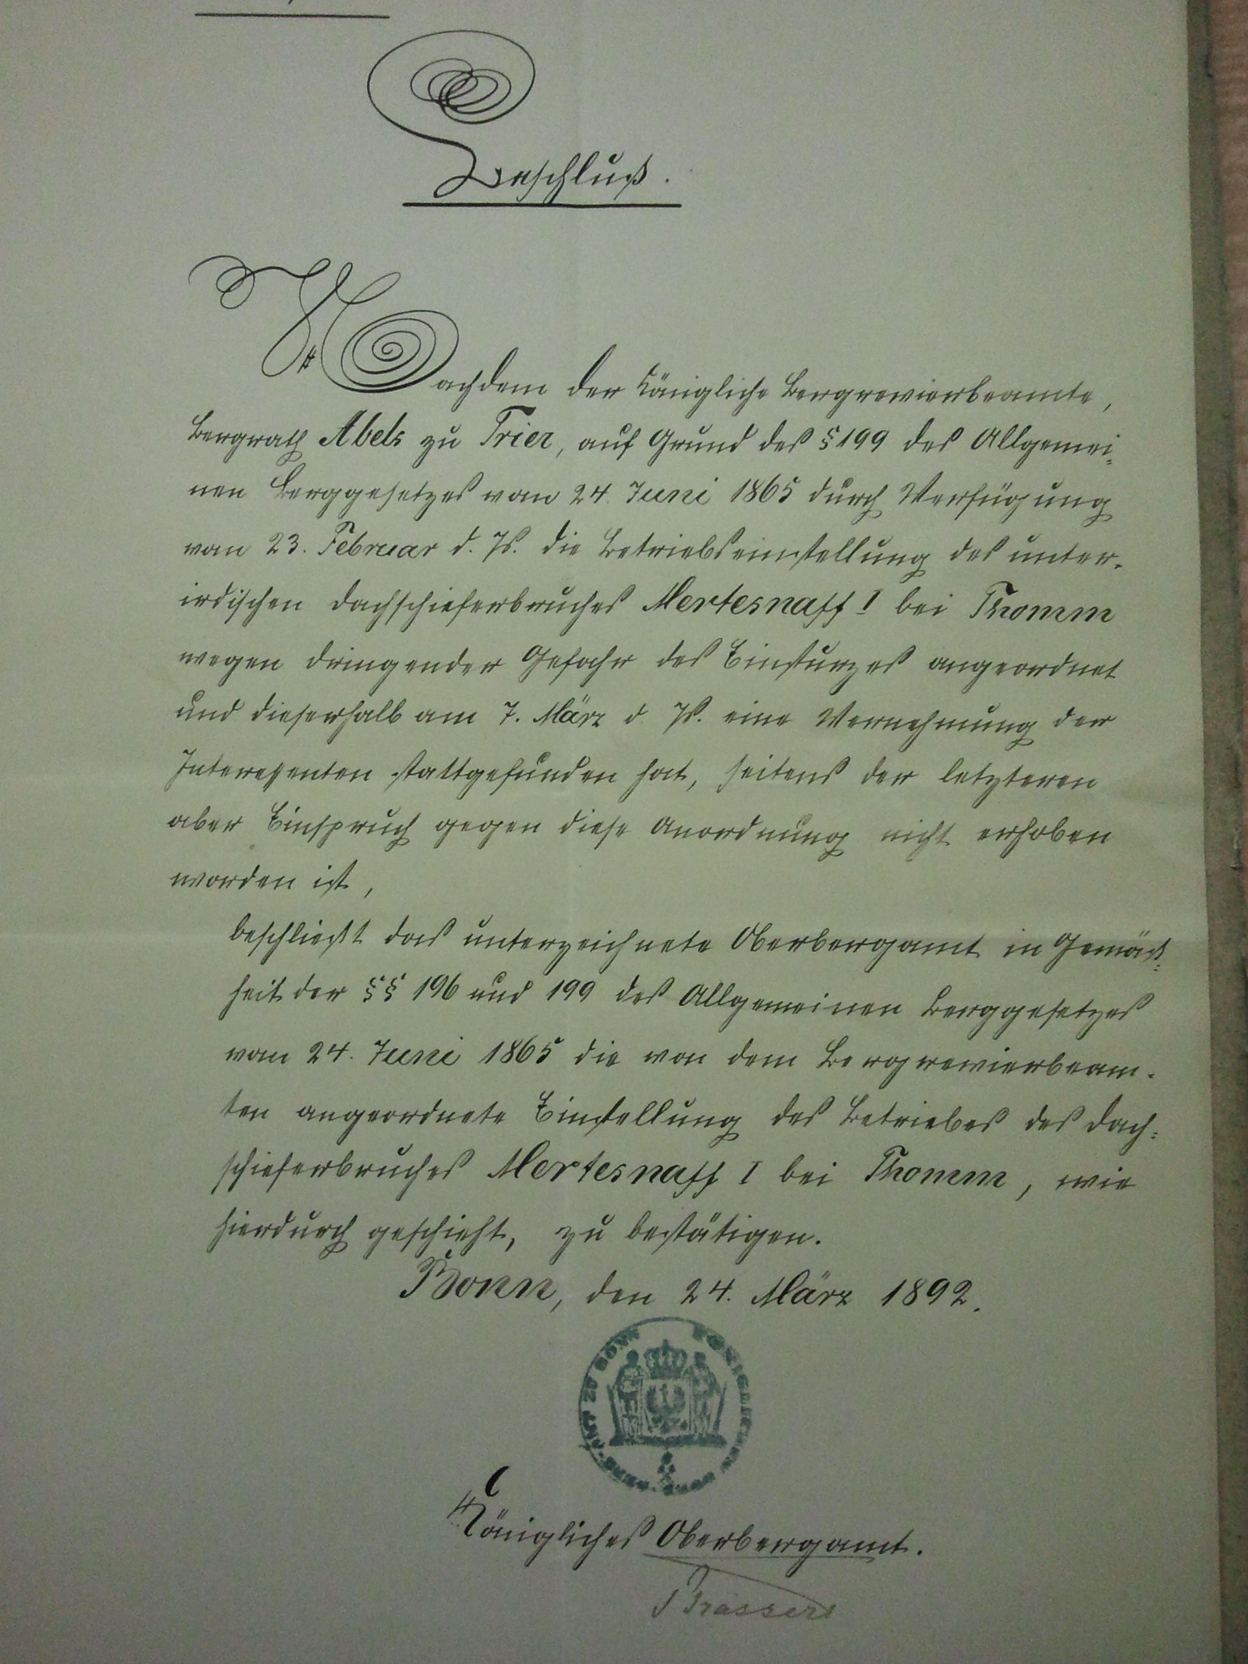 Beschluß.
Nachdem der Königliche Bergrevierbeamte,
Bergrath Abels zu Trier, auf Grund des § 199 des Allgemei-
nen Berggesetzes vom 24. Juni 1865 durch Verfügung
vom 23. Februar d. Js. die Betriebseinstellung des unter-
irdischen Dachschieferbruches Mertesnaff I bei Thomm
wegen dringender Gefahr des Einsturzes angeordnet
und dieserhalb am 7. März d. Js. eine Vernehmung der
Interessenten stattgefunden hat, seitens der letzteren
aber Einspruch gegen diese Anordnung nicht erhoben
worden ist,
beschließt das unterzeichnete Oberbergamt in Gemäß-
heit der §§ 196 und 199 des Allgemeinen Berggesetzes
vom 24. Juni 1865 die von dem Bergrevierbeam-
ten angeordnete Einstellung des Betriebes des Dach-
schieferbruches Mertesnaff I bei Thomm, wie
hierdurch geschieht, zu bestätigen.
Bonn, den 24. März 1892.
KOENIGLICHES OBER-BERG-AMT ZU BONN
Königliches Oberbergamt.
Brassert